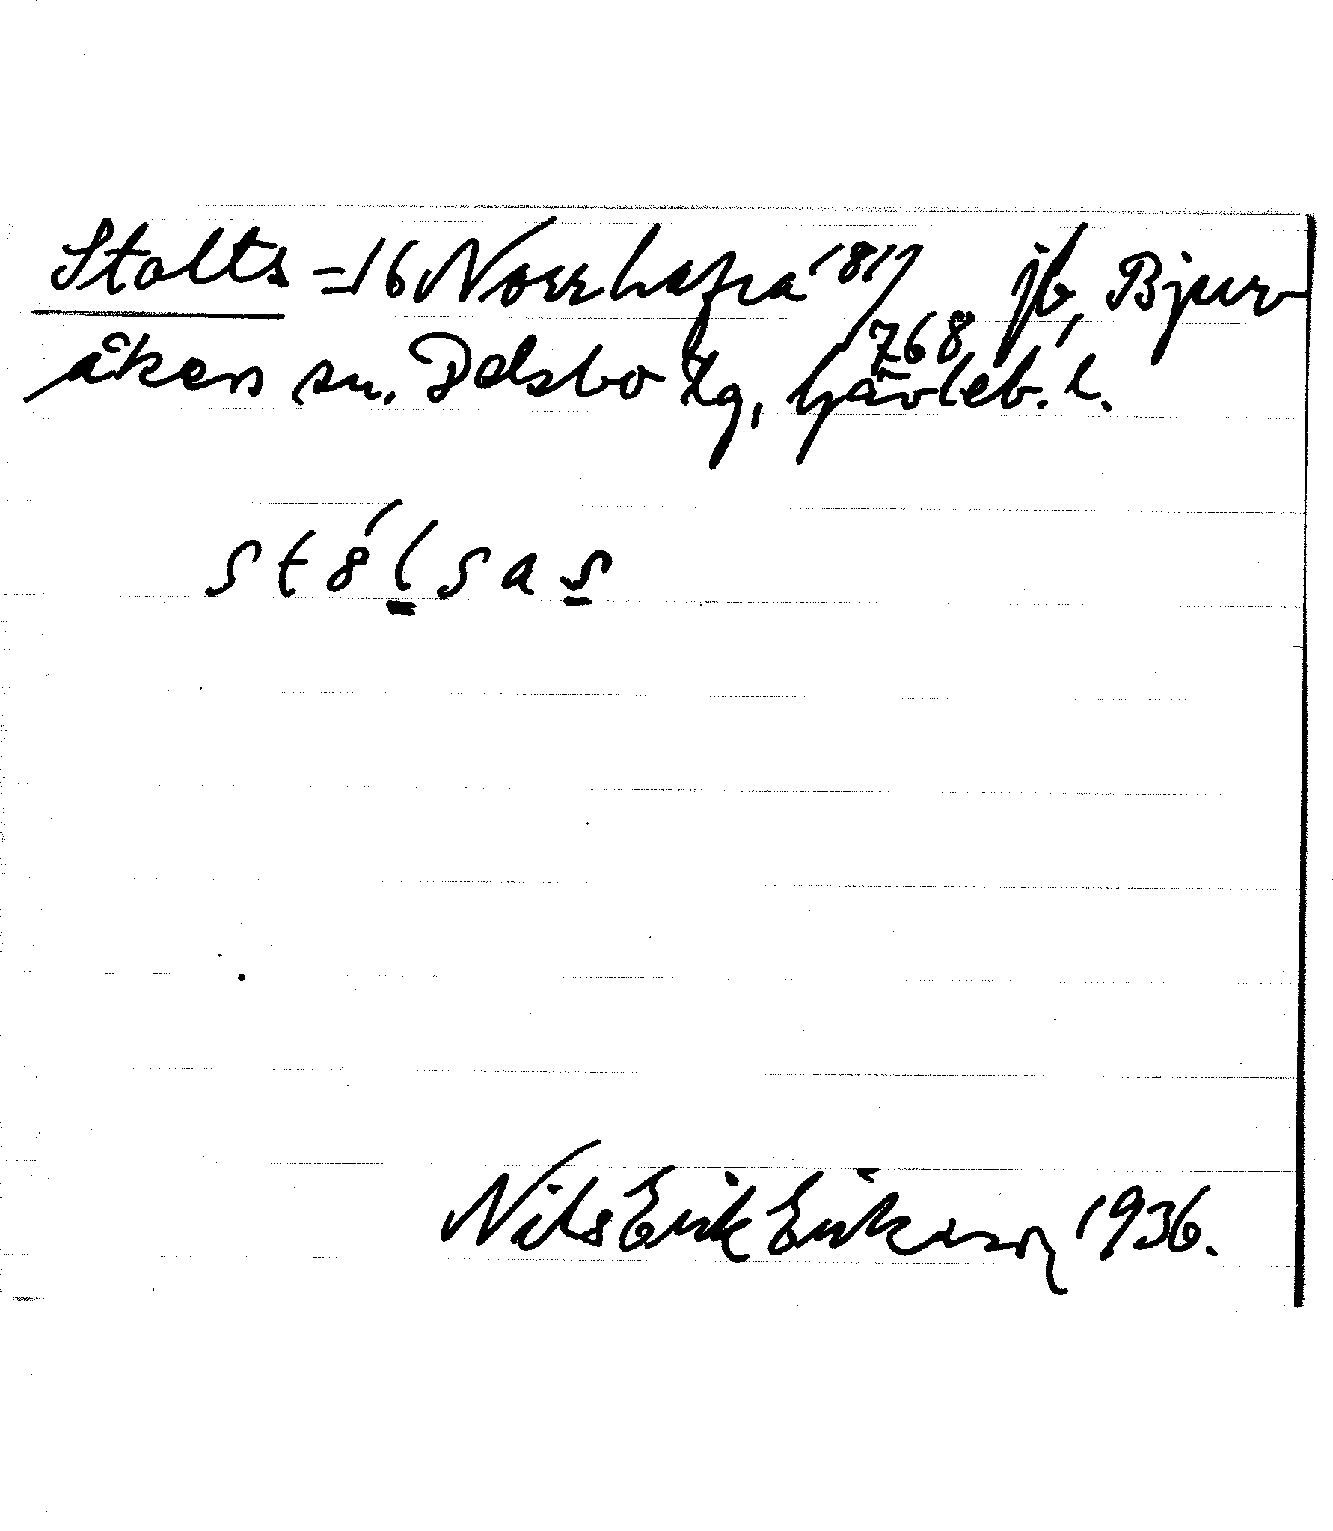 Stolts = 16 Norrhafra 1817/768 jb, Bjur-
åkers sn. Delsbo tg, Gävleb. l.
stólsas
Nils Erik Eriksson 1936.